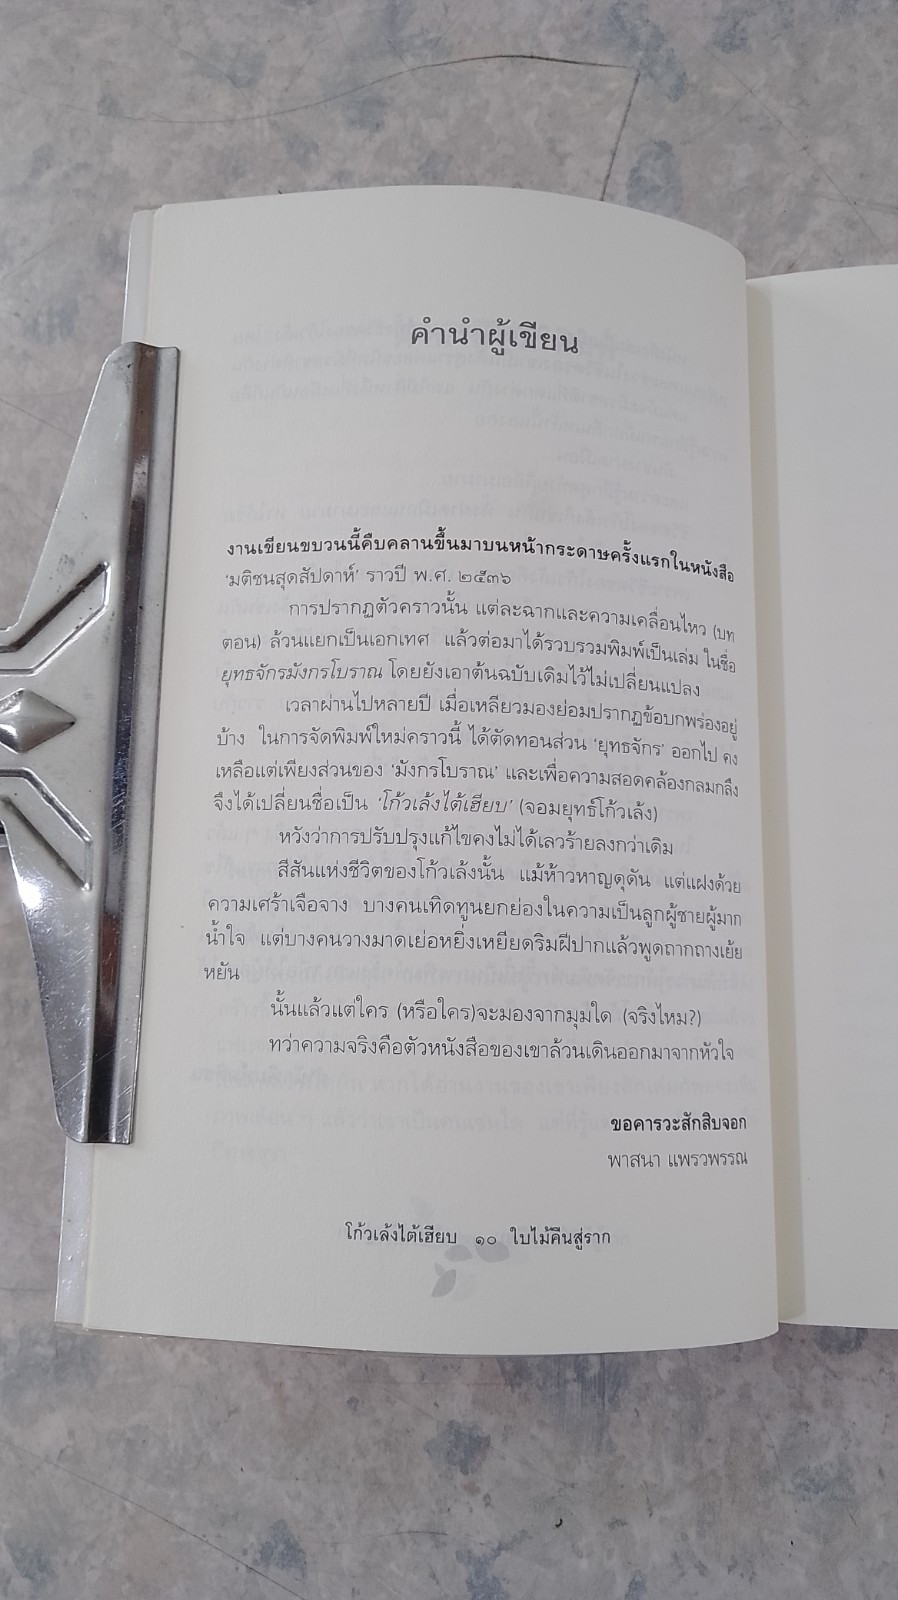 คำนำผู้เขียน
งานเขียนขบวนนี้คืบคลานขึ้นมาบนหน้ากระดาษครั้งแรกในหนังสือ
‘มติชนสุดสัปดาห์’ ราวปี พ.ศ. ๒๕๓๖
การปรากฏตัวคราวนั้น แต่ละฉากและความเคลื่อนไหว (บท
ตอน) ล้วนแยกเป็นเอกเทศ แล้วต่อมาได้รวบรวมพิมพ์เป็นเล่ม ในชื่อ
ยุทธจักรมังกรโบราณ โดยยังเอาต้นฉบับเดิมไว้ไม่เปลี่ยนแปลง
เวลาผ่านไปหลายปี เมื่อเหลียวมองย่อมปรากฏข้อบกพร่องอยู่
บ้าง ในการจัดพิมพ์ใหม่คราวนี้ ได้ตัดทอนส่วน ‘ยุทธจักร’ ออกไป คง
เหลือแต่เพียงส่วนของ ‘มังกรโบราณ’ และเพื่อความสอดคล้องกลมกลึง
จึงได้เปลี่ยนชื่อเป็น ‘โก้วเล้งไต้เฮียบ’ (จอมยุทธ์โก้วเล้ง)
หวังว่าการปรับปรุงแก้ไขคงไม่ได้เลวร้ายลงกว่าเดิม
สีสันแห่งชีวิตของโก้วเล้งนั้น แม้ห้าวหาญดุดัน แต่แฝงด้วย
ความเศร้าเจือจาง บางคนเทิดทูนยกย่องในความเป็นลูกผู้ชายผู้มาก
น้ำใจ แต่บางคนวางมาดเย่อหยิ่งเหยียดริมฝีปากแล้วพูดถากถางเย้ย
หยัน
นั้นแล้วแต่ใคร (หรือใคร)จะมองจากมุมใด (จริงไหม?)
ทว่าความจริงคือตัวหนังสือของเขาล้วนเดินออกมาจากหัวใจ
ขอคารวะสักสิบจอก
พาสนา แพรวพรรณ
โก้วเล้งไต้เฮียบ ๑๐ ใบไม้คืนสู่ราก